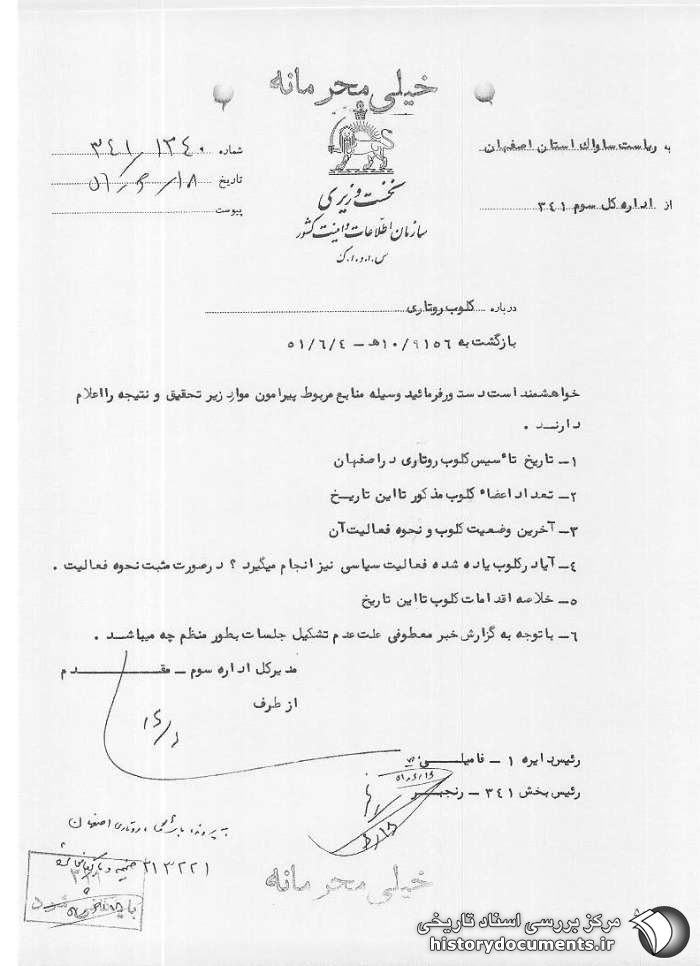 خیلی محرمانه
به ریاست ساواک استان اصفهان
از اداره کل سوم ۳۴۱
نخست وزیری
سازمان اطلاعات و امنیت کشور
س.ا.و.ا.ک
شماره ۳۴۱/۱۳۴۰
تاریخ ۵۱/۶/۱۸
پیوست
درباره کلوب روتاری
بازگشت به ۱۰/۹۱۵۶ه‍ - ۵۱/۶/۴
خواهشمند است دستور فرمائید وسیله منابع مربوط پیرامون موارد زیر تحقیق و نتیجه را اعلام
دارند .
۱- تاریخ تأسیس کلوب روتاری در اصفهان
۲- تعداد اعضاء کلوب مذکور تا این تاریخ
۳- آخرین وضعیت کلوب و نحوه فعالیت آن
۴- آیا در کلوب یاد شده فعالیت سیاسی نیز انجام میگیرد ؟ در صورت مثبت نحوه فعالیت .
۵- خلاصه اقدامات کلوب تا این تاریخ
۶- با توجه به گزارش خبر معطوفی علت عدم تشکیل جلسات بطور منظم چه میباشد .
مدیرکل اداره سوم - مقدم
از طرف
رئیس دایره ۱ - فامیلی
رئیس بخش ۳۴۱ - رنجبر
۵۱/۶/۱۶
روتاری اصفهان
۳۱۳۲۲۱
خیلی محرمانه
مرکز بررسی اسناد تاریخی
historydocuments.ir